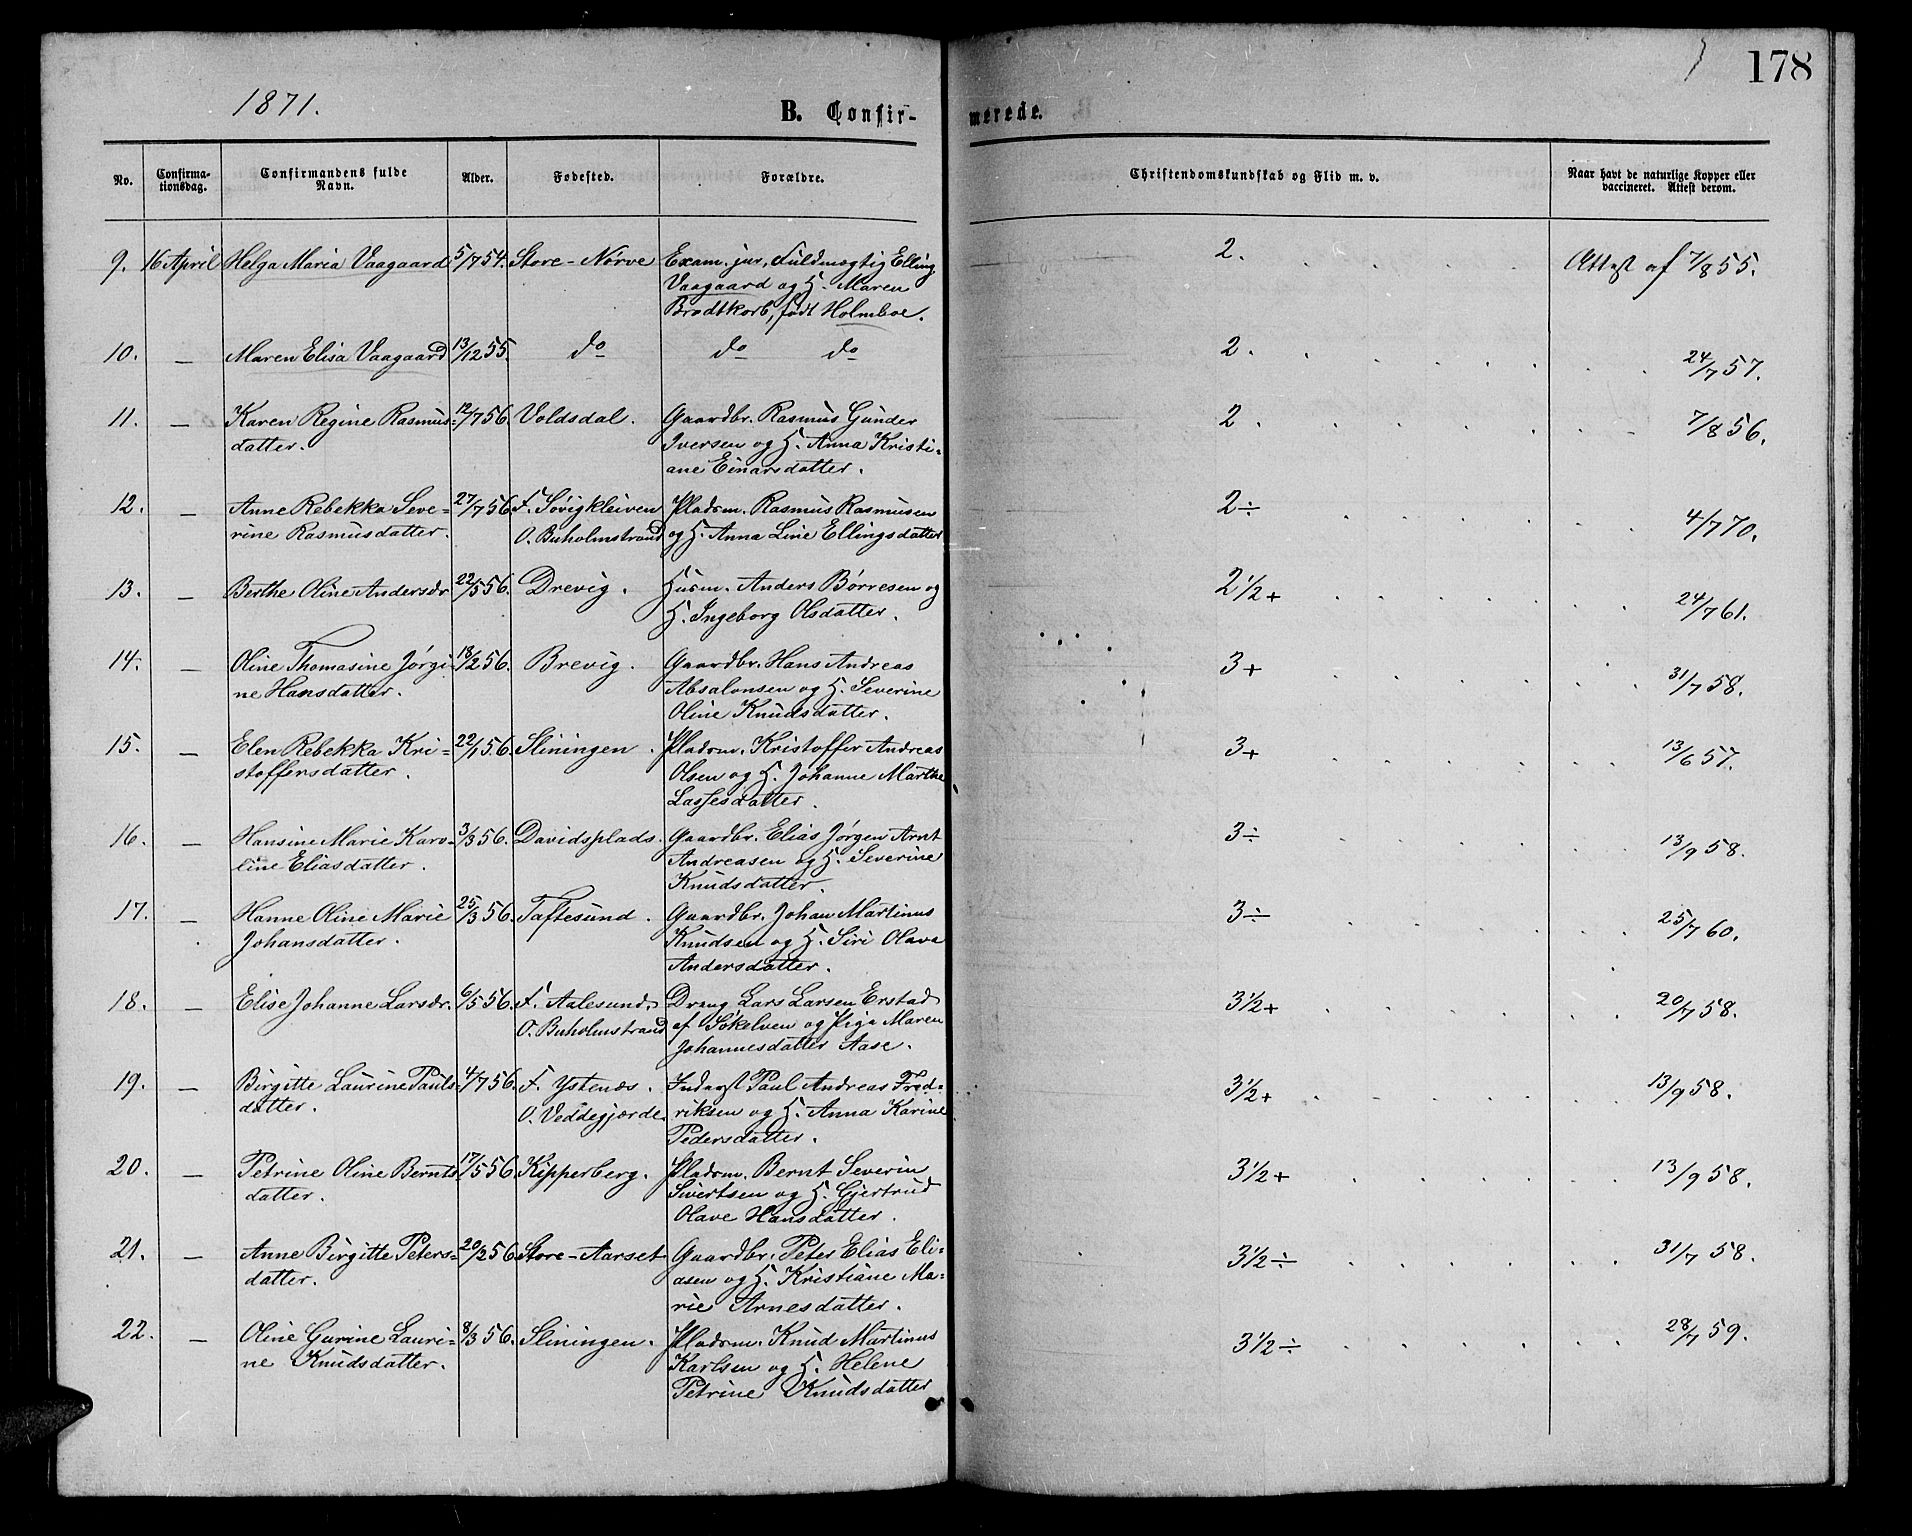 178
1871.
B. Confir-
merede.
No.
Confirma-
tionsdag.
Confirmandens fulde
Navn.
Alder.
Fødested.
Forældre.
Christendomskundskab og Flid m. v.
Naar havt de naturlige Kopper eller
vaccineret. Attest derom.
9. 16 April Helga Maria Vaagaard 5/7 54. Store-Nørve Exam. jur. Fuldmægtig Elling 2. Attest af 7/8 55.
Vaagaard og H. Maren
Brodtkorb, født Holmboe.
10. — Maren Elisa Vaagaard 13/12 55. do do do 2. 24/7 57.
11. — Karen Regine Rasmus- 12/7 56. Voldsdal. Gaardbr. Rasmus Gunder 2. 7/8 56.
datter. Iversen og H. Anna Kristi-
ane Einarsdatter.
12. — Anne Rebekka Seve- 27/7 56. F. Søvigkleiven Pladsm. Rasmus Rasmusen 2÷ 4/7 70.
rine Rasmusdatter. O. Buholmstrand og H. Anna Line Ellingsdatter
13. — Berthe Oline Andersdr. 22/5 56. Drevig. Husm. Anders Børresen og 2½+ 24/7 61.
H. Ingeborg Olsdatter.
14. — Oline Thomasine Jørgi- 18/2 56. Brevig. Gaardbr. Hans Andreas 3+ 31/7 58.
ne Hansdatter. Absalonsen og H. Severine
Oline Knudsdatter.
15. — Elen Rebekka Kri- 22/1 56. Sliningen. Pladsm. Kristoffer Andreas 3+ 13/6 57.
stoffersdatter. Olsen og H. Johanne Marthe
Lassesdatter.
16. — Hansine Marie Karo- 3/3 56. Davidsplads. Gaardbr. Elias Jørgen Arnt 3÷ 13/9 58.
line Eliasdatter. Andreasen og H. Severine
Knudsdatter.
17. — Hanne Oline Marie 25/3 56. Taftesund. Gaardbr. Johan Martinus 3÷ 25/7 60.
Johansdatter. Knudsen og H. Siri Olava
Andersdatter.
18. — Elise Johanne Larsdr. 6/5 56. F. Aalesund, Dreng Lars Larsen Erstad 3½+ 20/7 58.
O. Buholmstrand af Søkelven og Pige Maren
Johannesdatter Aase.
19. — Birgitte Laurine Pauls- 4/7 56. F. Ystenæs. Inderst Paul Andreas Fred- 3½+ 13/9 58.
datter. O. Veddegjærde. riksen og H. Anna Karine
Pedersdatter.
20. — Petrine Oline Bernts- 17/5 56 Kipperberg. Pladsm. Bernt Severin 3½+ 13/9 58.
datter. Sivertsen og H. Gjertrud
Olave Hansdatter.
21. — Anne Birgitte Peters- 20/2 56 Store-Aarset Gaardbr. Peter Elias Eli- 3½÷ 31/7 58.
datter. asen og H. Kristiane Ma-
rie Arnesdatter.
22. — Oline Gurine Lauri- 8/3 56. Sliningen. Pladsm. Knud Martinus 3½÷ 28/7 59.
ne Knudsdatter. Karlsen og H. Helene
Petrine Knudsdatter